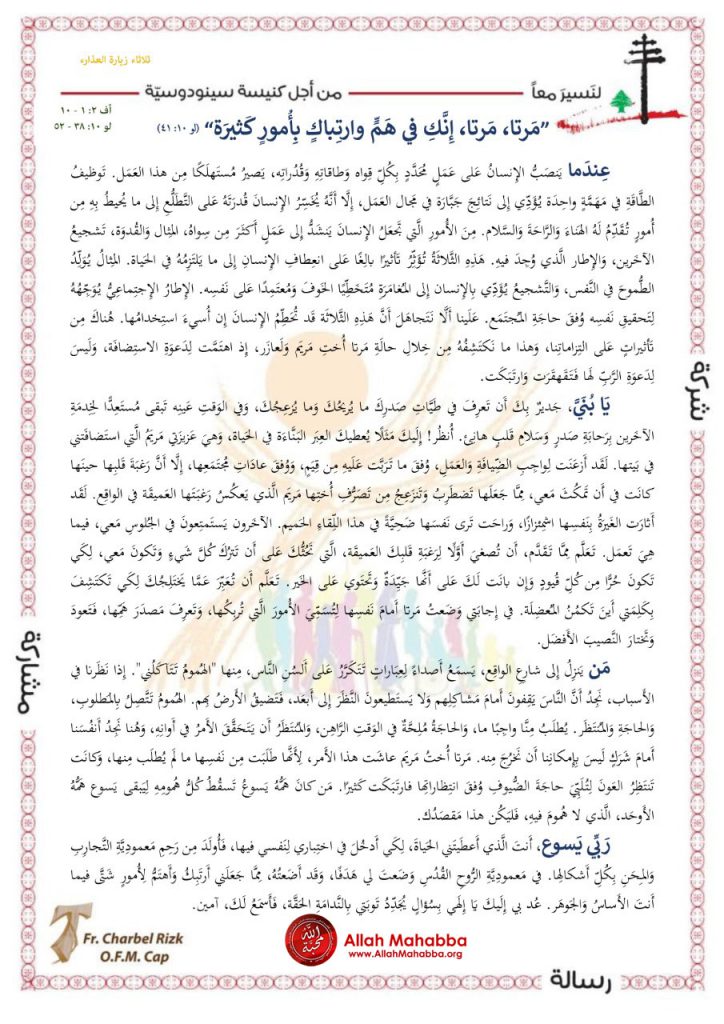 ثلاثاء زيارة العذراء
لنَسيرَ معاً
من أجل كنيسة سينودوسيّة
أف ٢: ١ - ١٠
لو ١٠: ٣٨ - ٥٢
”مَرتا، مَرتا، إِنَّكِ في هَمٍّ وارتِباكٍ بِأُمورٍ كَثيرَة“ (لو ١٠: ٤١)
عِندَما يَنصَبُّ الإنسانُ عَلى عَمَلٍ مُحَدَّدٍ بِكُلِّ قِواه وَطاقاتِهِ وَقُدُراتِه، يَصيرُ مُستَهلَكًا مِن هذا العَمَل. تَوظيفُ
الطَّاقَةِ في مَهَمَّةٍ واحِدَة يُؤَدِّي إلى نَتائِجَ جَبَّارَة في مَجال العَمَل، إلَّا أنَّهُ يُخَسِّرُ الإنسانَ قُدرَتَهُ عَلى التَّطَلُّعِ إلى ما يُحيطُ بِهِ مِن
أُمورٍ تُقَدِّمُ لَهُ الهَناءَ وَالرَّاحَةَ وَالسَّلام. مِنَ الأُمورِ الَّتي تَجعَلُ الإنسانَ يَنشَدُّ إلى عَمَلٍ أكثَرَ مِن سِواهُ، المِثال وَالقُدوَة، تَشجيعُ
الآخَرين، وَالإطار الَّذي وُجِدَ فيهِ. هَذِهِ الثَّلاثَةُ تُؤَثِّرُ تَأثيرًا بالِغًا عَلى انعِطافِ الإنسانِ إلى ما يَلتَزِمُهُ في الحَياة. المِثالُ يُوَلِّدُ
الطُّموحَ في النَّفس، وَالتَّشجيعُ يُؤَدِّي بِالإنسانِ إلى المُغامَرَةِ مُتَخَطِّيًا الخَوفَ وَمُعتَمِدًا عَلى نَفسِه. الإطارُ الإجتِماعِيُّ يُوَجِّهُهُ
لِتَحقيقِ نَفسِه وُفقَ حاجَةِ المُجتَمَع. عَلَينا ألَّا نَتَجاهَلَ أنَّ هَذِهِ الثَّلاثَة قَد تُحَطِّمُ الإنسانَ إن أُسيءَ استِخدامُها. هُناكَ مِن
تَأثيراتٍ عَلى التِزاماتِنا، وَهذا ما نَكتَشِفُهُ مِن خِلالِ حالَةِ مَرتا أُختِ مَريَم وَلَعازَر، إذ اهتَمَّت لِدَعوَةِ الاستِضافَة، وَلَيسَ
لِدَعوَةِ الرَّبِّ لَها فَتَقَهقَرَت وَارتَبَكَت.
يَا بُنَيَّ، جَديرٌ بِكَ أن تَعرِفَ في طَيَّاتِ صَدرِكَ ما يُريحُكَ وَما يُزعِجُكَ، وَفي الوَقتِ عَينِه تَبقى مُستَعِدًّا لِخِدمَةِ
الآخَرين بِرَحابَةِ صَدرٍ وَسَلامِ قَلبٍ هانِئ. أُنظُر! إلَيكَ مَثَلًا يُعطيكَ العِبَرَ البَنَّاءَة في الحَياة، وَهيَ عَزيزَتي مَريَمُ الَّتي استَضافَتني
في بَيتِها. لَقَد أذعَنَت لِواجِبِ الضِّيافَةِ وَالعَمَلِ، وُفقَ ما تَرَبَّت عَلَيهِ مِن قِيَمٍ، وَوُفقَ عاداتِ مُجتَمَعِها، إلَّا أنَّ رَغبَةَ قَلبِها حينَها
كانَت في أن تَمكُثَ مَعي، مِمَّا جَعَلَها تَضطَرِبُ وَتَنزَعِجُ مِن تَصَرُّفِ أُختِها مَريَم الَّذي يَعكُسُ رَغبَتَها العَميقَة في الواقِع. لَقَد
أثارَت الغَيرَةُ بِنَفسِها اشمِئزازًا، وَراحَت تَرى نَفسَها ضَحِيَّةً في هذا اللِّقاءِ الحَميم. الآخَرون يَستَمتِعونَ في الجُلوسِ مَعي، فيما
هِيَ تَعمَل. تَعَلَّم مِمَّا تَقَدَّم، أن تُصغِيَ أوَّلًا لِرَغبَةِ قَلبِكَ العَميقَة، الَّتي تَحُثُّكَ عَلى أن تَترُكَ كُلَّ شَيءٍ وَتَكونَ مَعي، لِكَي
تَكونَ حُرًّا مِن كُلِّ قُيودٍ وَإن بانَت لَكَ عَلى أنَّها جَيِّدَةٌ وَتَحتَوي عَلى الخَير. تَعَلَّم أن تُعَبِّرَ عَمَّا يَختَلِجُكَ لِكَي تَكتَشِفَ
بِكَلِمَتي أينَ تَكمُنُ المُعضِلَة. في إجابَتي وَضَعتُ مَرتا أمامَ نَفسِها لِتُسَمِّيَ الأُمورَ الَّتي تُربِكُها، وَتَعرِفَ مَصدَرَ هَمِّها، فَتَعودَ
وَتَختارَ النَّصيبَ الأفضَل.
مَن يَنزِلُ إلى شارِعِ الواقِعِ، يَسمَعُ أصداءً لِعِباراتٍ تَتَكَرَّرُ عَلى ألسُنِ النَّاس، مِنها "الهُمومُ تَتَآكَلُني". إذا نَظَرنا في
الأسباب، نَجِدُ أنَّ النَّاسَ يَقِفونَ أمامَ مَشاكِلِهم وَلا يَستَطيعونَ النَّظَرَ إلى أبعَد، فَتَضيقُ الأرضُ بِهِم. الهُمومُ تَتَّصِلُ بِالمَطلوبِ،
وَالحاجَةِ وَالمُنتَظَر. يُطلَبُ مِنَّا واجِبًا ما، وَالحاجَةُ مُلِحَّةٌ في الوَقتِ الرَّاهِن، وَالمُنتَظَرُ أن يَتَحَقَّقَ الأمرُ في أوانِهِ، وَهُنا نَجِدُ أنفُسَنا
أمامَ شَرَكٍ لَيسَ بِإمكانِنا أن نَخرُجَ مِنه. مَرتا أُختُ مَريَم عاشَت هذا الأمر، لِأنَّها طَلَبَت مِن نَفسِها ما لَم يُطلَب مِنها، وَكانَت
تَنتَظِرُ العَونَ لِتُلَبِّيَ حاجَةَ الضُّيوفِ وُفقَ انتِظاراتِها فارتَبَكَت كَثيرًا. مَن كانَ هَمُّهُ يَسوعُ تَسقُطُ كُلُّ هُمومِهِ لِيَبقى يَسوعَ هَمُّهُ
الأوحَد، الَّذي لا هُمومَ فيهِ، فَليَكُن هذا مَقصَدُك.
رَبِّي يَسوع، أنتَ الَّذي أعطَيتَني الحَياةَ، لِكَي أدخُلَ في اختِباري لِنَفسي فيها، فَأُولَدَ مِن رَحِمِ مَعمودِيَّةِ التَّجارِبِ
وَالمِحَنِ بِكُلِّ أشكالِها. في مَعمودِيَّةِ الرُّوحِ القُدُسِ وَضَعتَ لي هَدَفًا، وَقَد أضَعتُهُ، مِمَّا جَعَلَني أرتَبِكُ وَأهتَمُّ لِأُمورٍ شَتَّى فيما
أنتَ الأساسُ وَالجَوهَر. عُد بي إلَيكَ يَا إلَهي بِسُؤالٍ يُجَدِّدُ تَوبَتي بِالنَّدامَةِ الحَقَّة، فَأسمَعُ لَكَ، آمين.
شركة
مشاركة
رسالة
Fr. Charbel Rizk
O.F.M. Cap
الله محبّة
Allah Mahabba
www.AllahMahabba.org